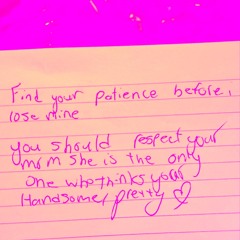 Find your patience before i
lose mine
you should respect your
mom she is the only
one who thinks your
Handsome/pretty ♡